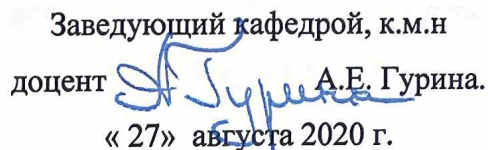 Заведующий кафедрой, к.м.н
доцент А.Гурина А.Е. Гурина.
« 27» августа 2020 г.